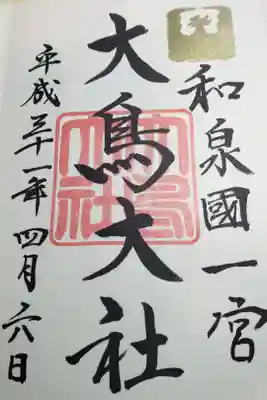 和泉國一宮
大鳥大社
大鳥大社
平成三十一年四月六日